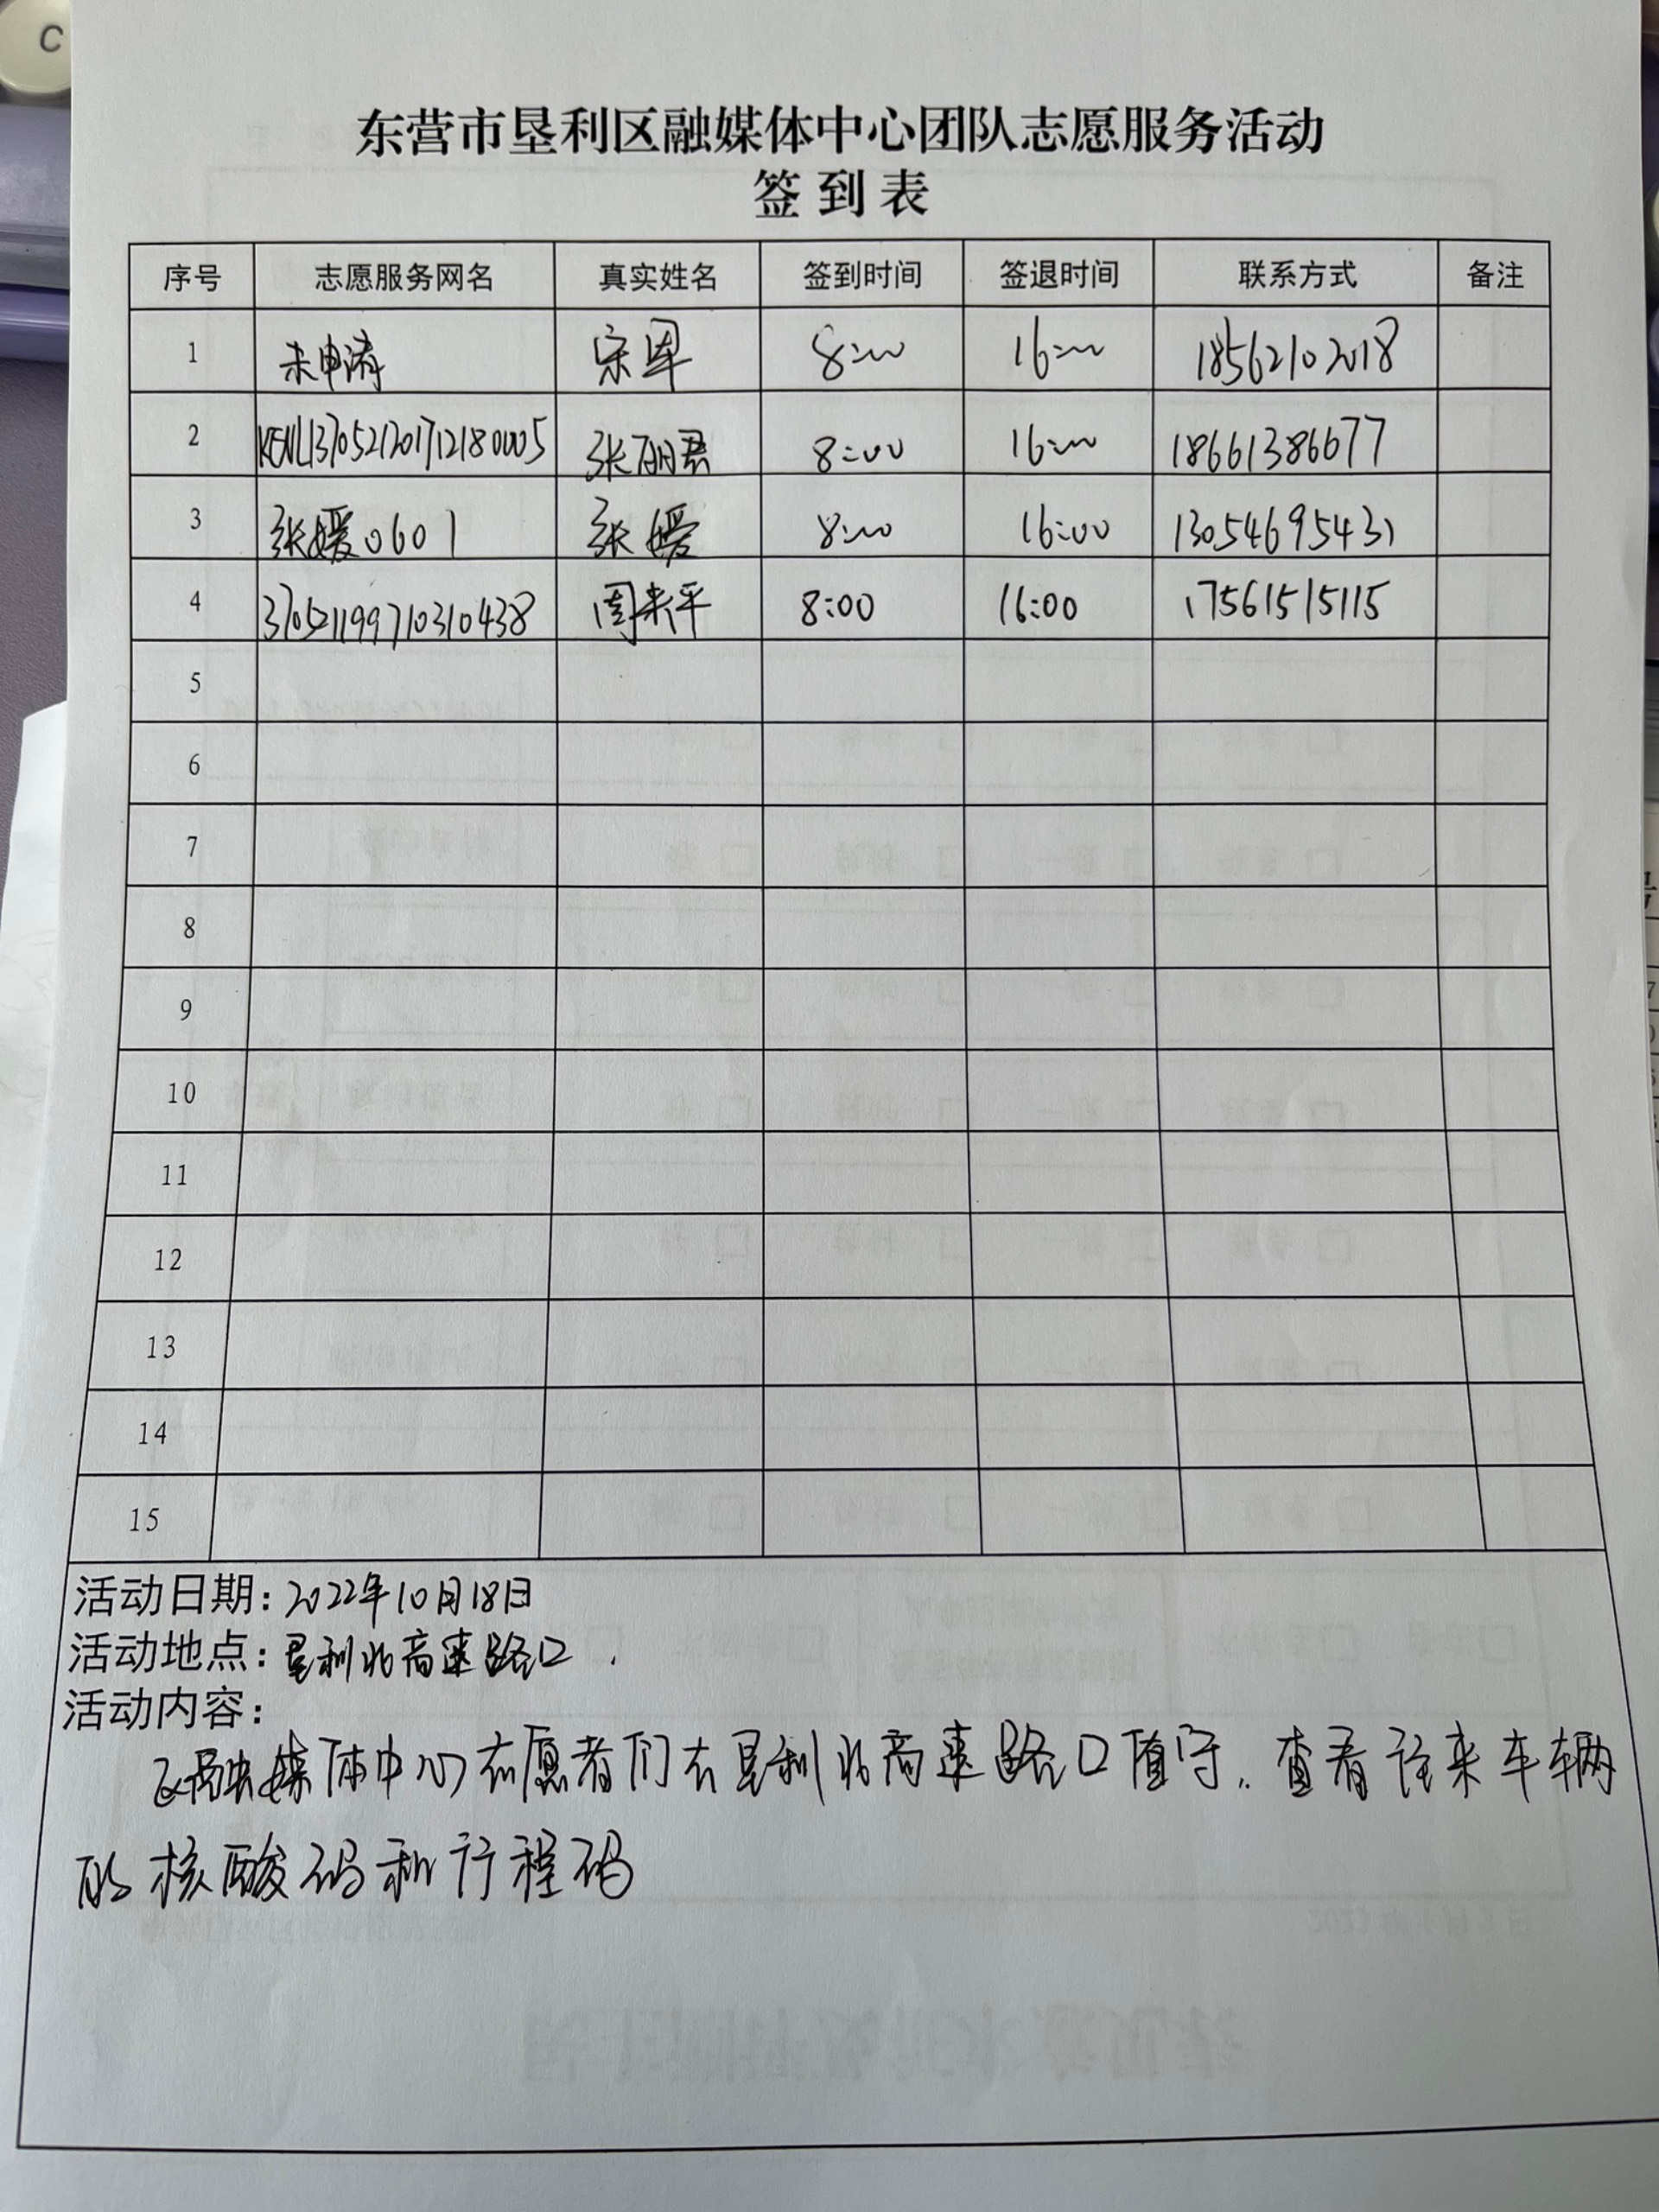 东营市垦利区融媒体中心团队志愿服务活动
签到表
序号 志愿服务网名 真实姓名 签到时间 签退时间 联系方式 备注
1 未申请 宋军 8:00 16:00 18562102018
2 KENL1370521201712180005 张丽君 8:00 16:00 18661386677
3 张媛0601 张媛 8:00 16:00 13054695431
4 370521199710310438 周来平 8:00 16:00 17561515115
5
6
7
8
9
10
11
12
13
14
15
活动日期:2022年10月18日
活动地点:垦利北高速路口
活动内容:
区融媒体中心志愿者们在垦利北高速路口值守,查看往来车辆
的核酸码和行程码